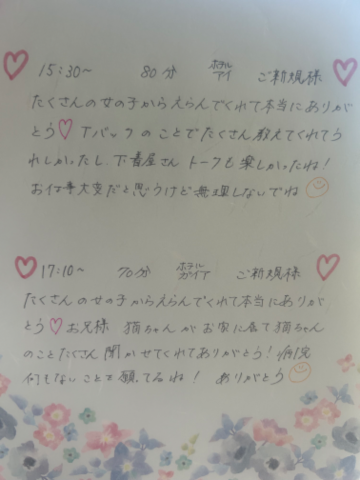 15:30~ 80分 ホテル アイ ご新規様
たくさんの女の子からえらんでくれて本当にありが
とう♡ Tバックのことでたくさん教えてくれてう
れしかったし、下着屋さんトークも楽しかったね!
お仕事大変だと思うけど無理しないでね
17:10~ 70分 ホテル ガイア ご新規様
たくさんの女の子からえらんでくれて本当にありが
とう♡ お兄様 猫ちゃんがお家に居て猫ちゃん
のことたくさん聞かせてくれてありがとう!病院
何もないことを願ってるね! ありがとう